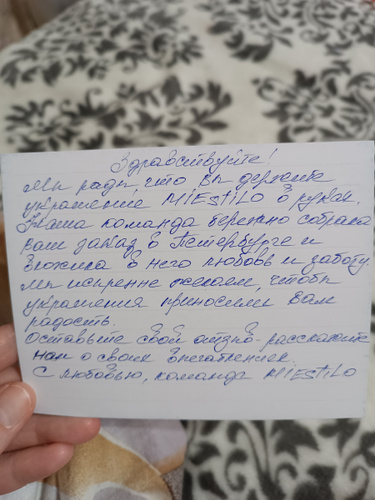 Здравствуйте!
Мы рады, что Вы держите
украшение MIESTILO в руках.
Наша команда бережно собрала
ваш заказ в Петербурге и
вложила в него любовь и заботу.
Мы искренне желаем, чтобы
украшения приносили Вам
радость.
Оставьте свой отзыв - расскажите
нам о своих впечатлениях.
С любовью, команда MIESTILO